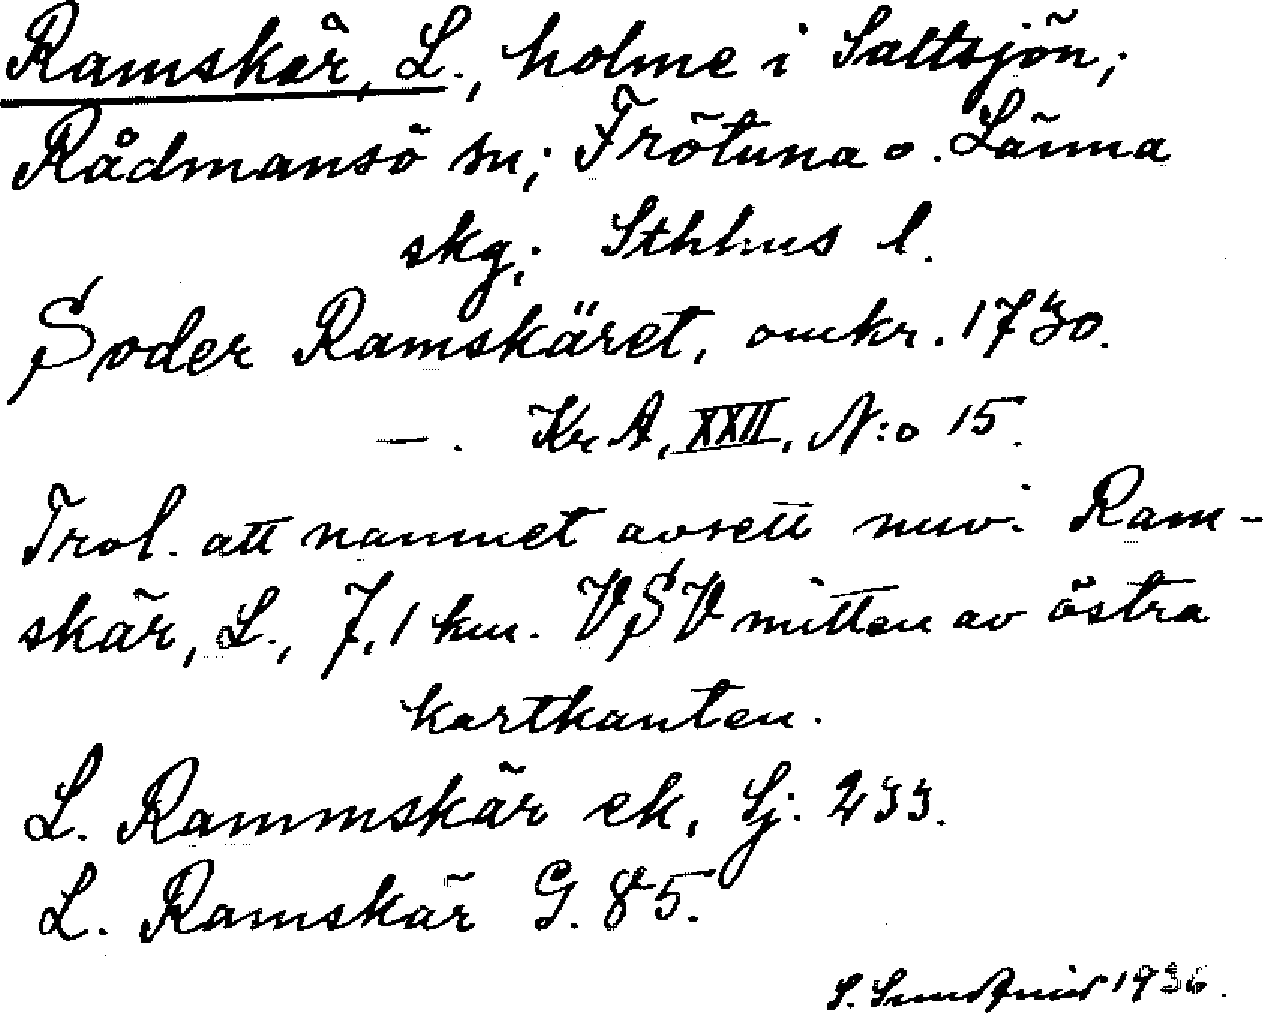 Ramskär, L., holme i Saltsjön;
Rådmansö sn; Frötuna o. Länna
skg; Sthlms l.
Söder Ramskäret, omkr. 1730.
—. KrA, XXII, N:o 15.
Trol. att namnet avsett nuv. Ram-
skär, L., 7,1 km. VSV mitten av östra
kartkanten.
L. Rammskär ek, Sj: 233.
L. Ramskär G. 85.
S. 1936.